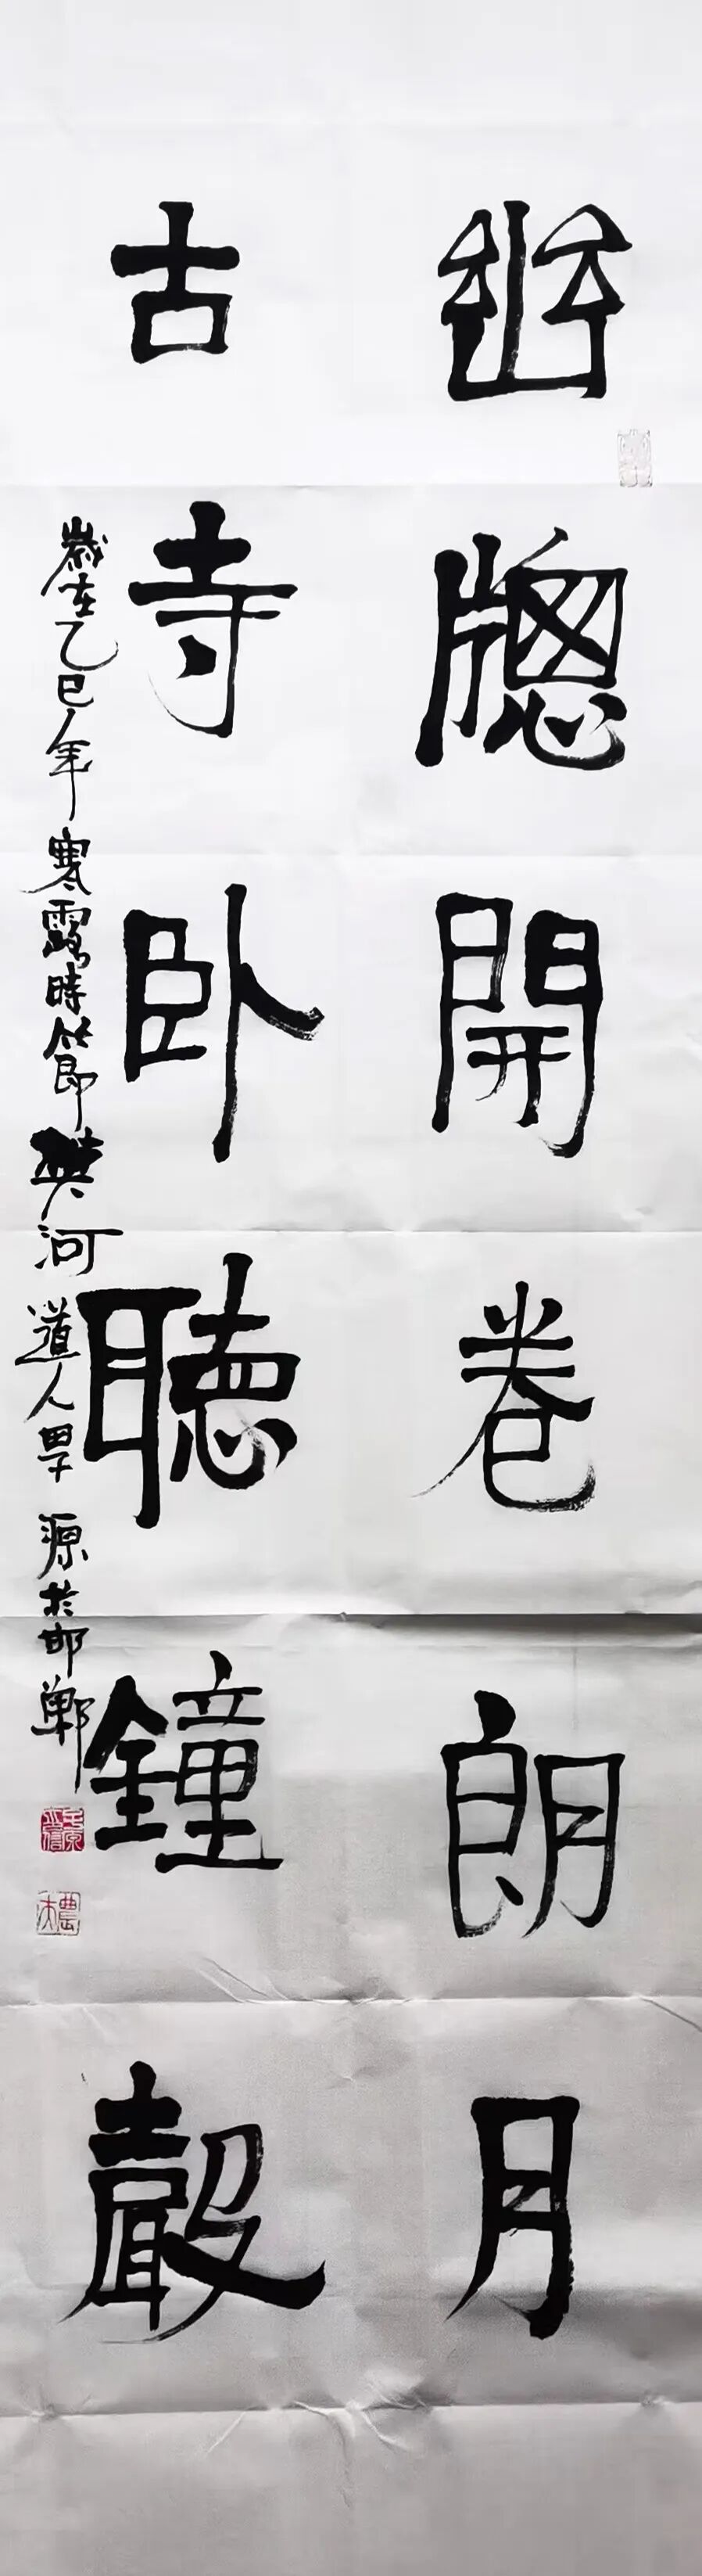 幽牕開卷朗月
古寺卧聽鐘聲
歲在乙巳年寒露時節河道人源於邯鄲